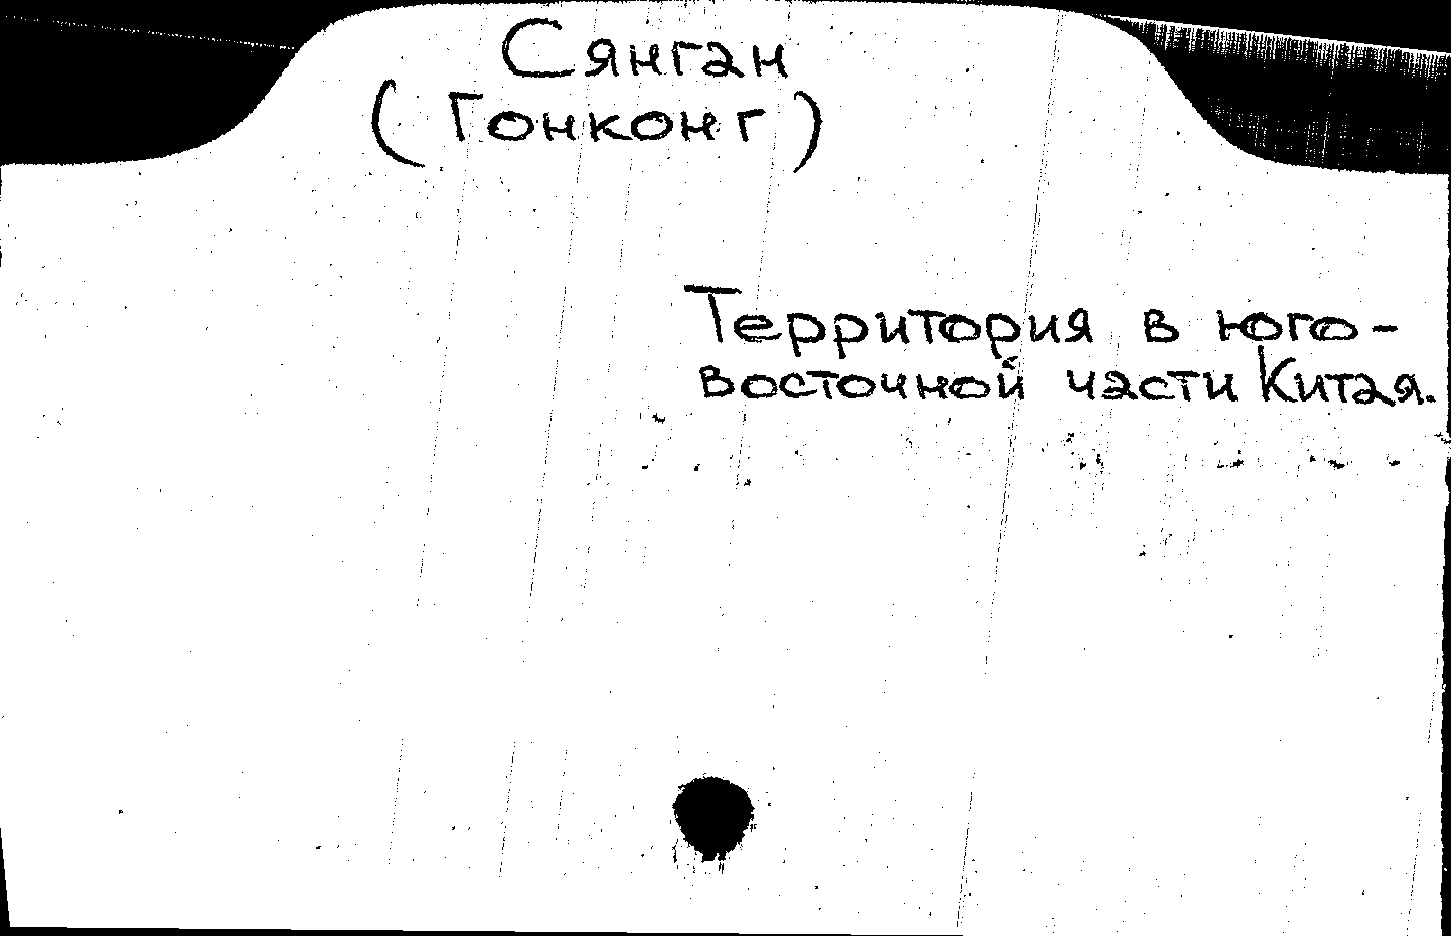 Сянган
(Гонконг)
Территория в юго-
восточной части Китая.